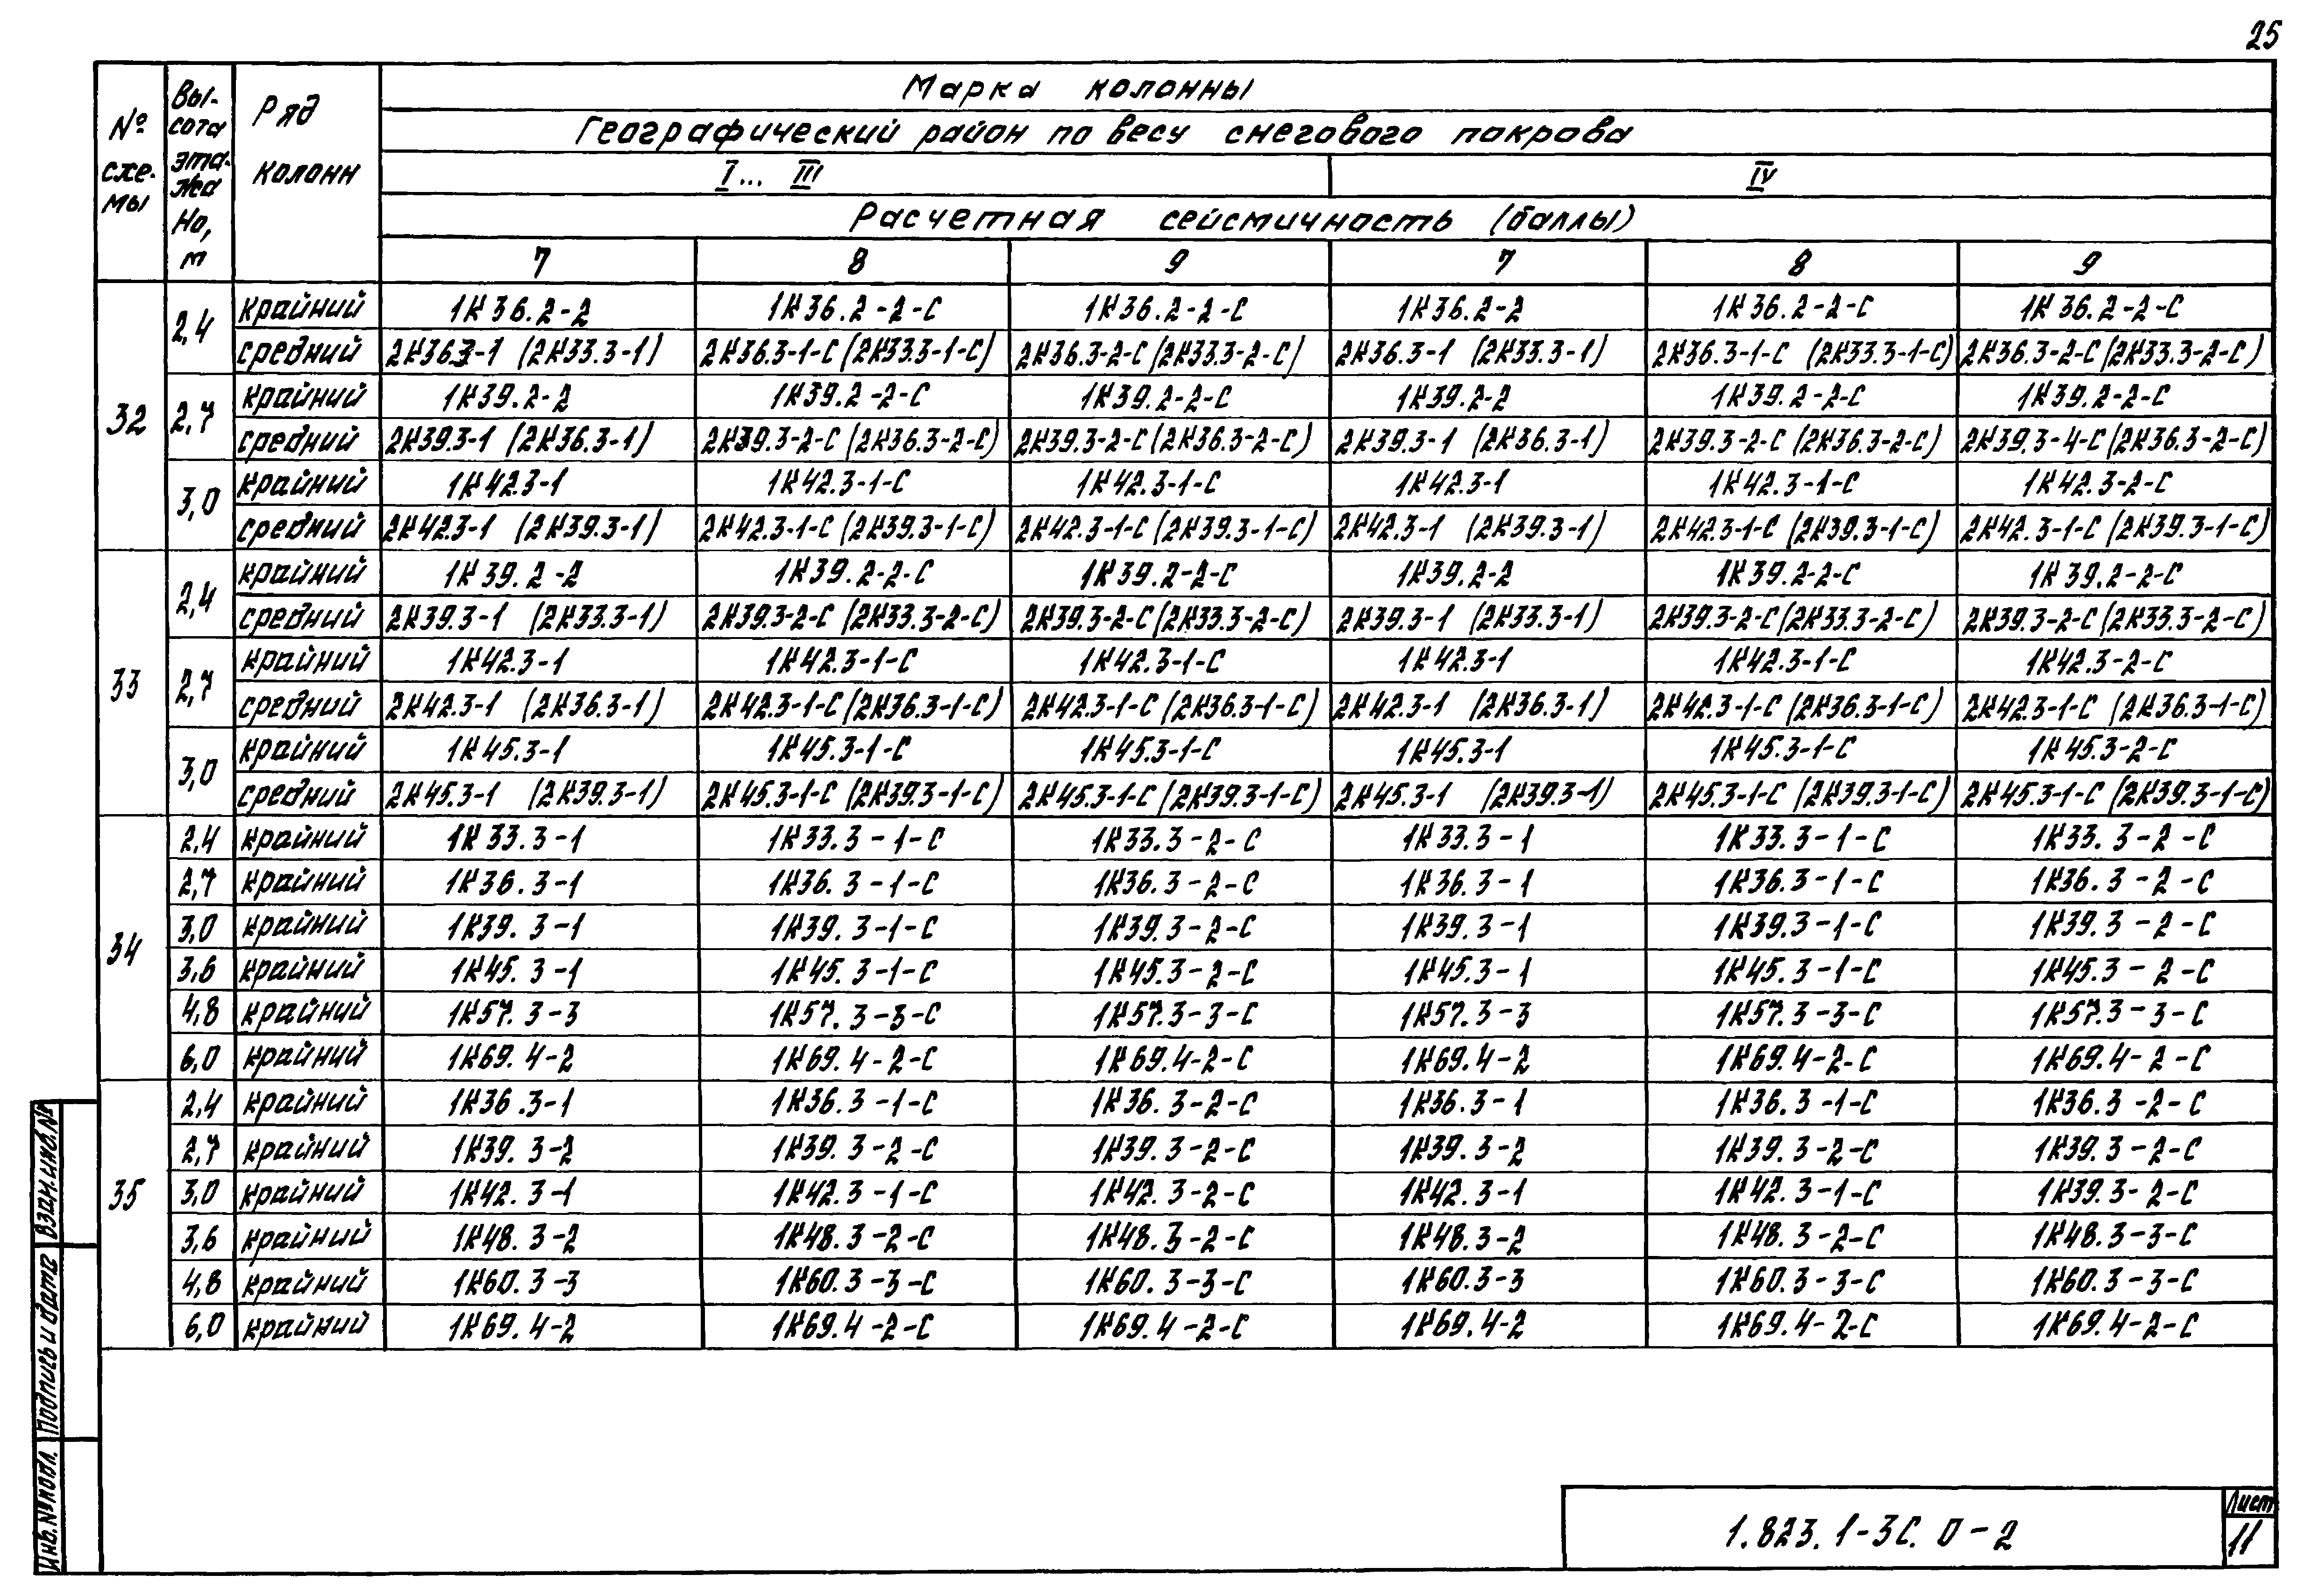 25
№ схе- мы | Вы- сота эта- жа Но, м | Ряд колонн | Марка колонны
Географический район по весу снегового покрова
I... III | IV
Расчетная сейсмичность (баллы)
7 | 8 | 9 | 7 | 8 | 9
32 | 2,4 | крайний | 1К36.2-2 | 1К36.2-2-С | 1К36.2-2-С | 1К36.2-2 | 1К36.2-2-С | 1К36.2-2-С
средний | 2К36.3-1 (2К33.3-1) | 2К36.3-1-С (2К33.3-1-С) | 2К36.3-2-С (2К33.3-2-С) | 2К36.3-1 (2К33.3-1) | 2К36.3-1-С (2К33.3-1-С) | 2К36.3-2-С (2К33.3-2-С)
2,7 | крайний | 1К39.2-2 | 1К39.2-2-С | 1К39.2-2-С | 1К39.2-2 | 1К39.2-2-С | 1К39.2-2-С
средний | 2К39.3-1 (2К36.3-1) | 2К39.3-2-С (2К36.3-2-С) | 2К39.3-2-С (2К36.3-2-С) | 2К39.3-1 (2К36.3-1) | 2К39.3-2-С (2К36.3-2-С) | 2К39.3-4-С (2К36.3-2-С)
3,0 | крайний | 1К42.3-1 | 1К42.3-1-С | 1К42.3-1-С | 1К42.3-1 | 1К42.3-1-С | 1К42.3-2-С
средний | 2К42.3-1 (2К39.3-1) | 2К42.3-1-С (2К39.3-1-С) | 2К42.3-1-С (2К39.3-1-С) | 2К42.3-1 (2К39.3-1) | 2К42.3-1-С (2К39.3-1-С) | 2К42.3-1-С (2К39.3-1-С)
33 | 2,4 | крайний | 1К39.2-2 | 1К39.2-2-С | 1К39.2-2-С | 1К39.2-2 | 1К39.2-2-С | 1К39.2-2-С
средний | 2К39.3-1 (2К33.3-1) | 2К39.3-2-С (2К33.3-2-С) | 2К39.3-2-С (2К33.3-2-С) | 2К39.3-1 (2К33.3-1) | 2К39.3-2-С (2К33.3-2-С) | 2К39.3-2-С (2К33.3-2-С)
2,7 | крайний | 1К42.3-1 | 1К42.3-1-С | 1К42.3-1-С | 1К42.3-1 | 1К42.3-1-С | 1К42.3-2-С
средний | 2К42.3-1 (2К36.3-1) | 2К42.3-1-С (2К36.3-1-С) | 2К42.3-1-С (2К36.3-1-С) | 2К42.3-1 (2К36.3-1) | 2К42.3-1-С (2К36.3-1-С) | 2К42.3-1-С (2К36.3-1-С)
3,0 | крайний | 1К45.3-1 | 1К45.3-1-С | 1К45.3-1-С | 1К45.3-1 | 1К45.3-1-С | 1К45.3-2-С
средний | 2К45.3-1 (2К39.3-1) | 2К45.3-1-С (2К39.3-1-С) | 2К45.3-1-С (2К39.3-1-С) | 2К45.3-1 (2К39.3-1) | 2К45.3-1-С (2К39.3-1-С) | 2К45.3-1-С (2К39.3-1-С)
34 | 2,4 | крайний | 1К33.3-1 | 1К33.3-1-С | 1К33.3-2-С | 1К33.3-1 | 1К33.3-1-С | 1К33.3-2-С
2,7 | крайний | 1К36.3-1 | 1К36.3-1-С | 1К36.3-2-С | 1К36.3-1 | 1К36.3-1-С | 1К36.3-2-С
3,0 | крайний | 1К39.3-1 | 1К39.3-1-С | 1К39.3-2-С | 1К39.3-1 | 1К39.3-1-С | 1К39.3-2-С
3,6 | крайний | 1К45.3-1 | 1К45.3-1-С | 1К45.3-2-С | 1К45.3-1 | 1К45.3-1-С | 1К45.3-2-С
4,8 | крайний | 1К57.3-3 | 1К57.3-3-С | 1К57.3-3-С | 1К57.3-3 | 1К57.3-3-С | 1К57.3-3-С
6,0 | крайний | 1К69.4-2 | 1К69.4-2-С | 1К69.4-2-С | 1К69.4-2 | 1К69.4-2-С | 1К69.4-2-С
35 | 2,4 | крайний | 1К36.3-1 | 1К36.3-1-С | 1К36.3-2-С | 1К36.3-1 | 1К36.3-1-С | 1К36.3-2-С
2,7 | крайний | 1К39.3-2 | 1К39.3-2-С | 1К39.3-2-С | 1К39.3-2 | 1К39.3-2-С | 1К39.3-2-С
3,0 | крайний | 1К42.3-1 | 1К42.3-1-С | 1К42.3-2-С | 1К42.3-1 | 1К42.3-1-С | 1К39.3-2-С
3,6 | крайний | 1К48.3-2 | 1К48.3-2-С | 1К48.3-2-С | 1К48.3-2 | 1К48.3-2-С | 1К48.3-3-С
4,8 | крайний | 1К60.3-3 | 1К60.3-3-С | 1К60.3-3-С | 1К60.3-3 | 1К60.3-3-С | 1К60.3-3-С
6,0 | крайний | 1К69.4-2 | 1К69.4-2-С | 1К69.4-2-С | 1К69.4-2 | 1К69.4-2-С | 1К69.4-2-С
Инв.№ подл. Подпись и дата Взам.инв.№
1.823.1-3С.0-2
Лист
11